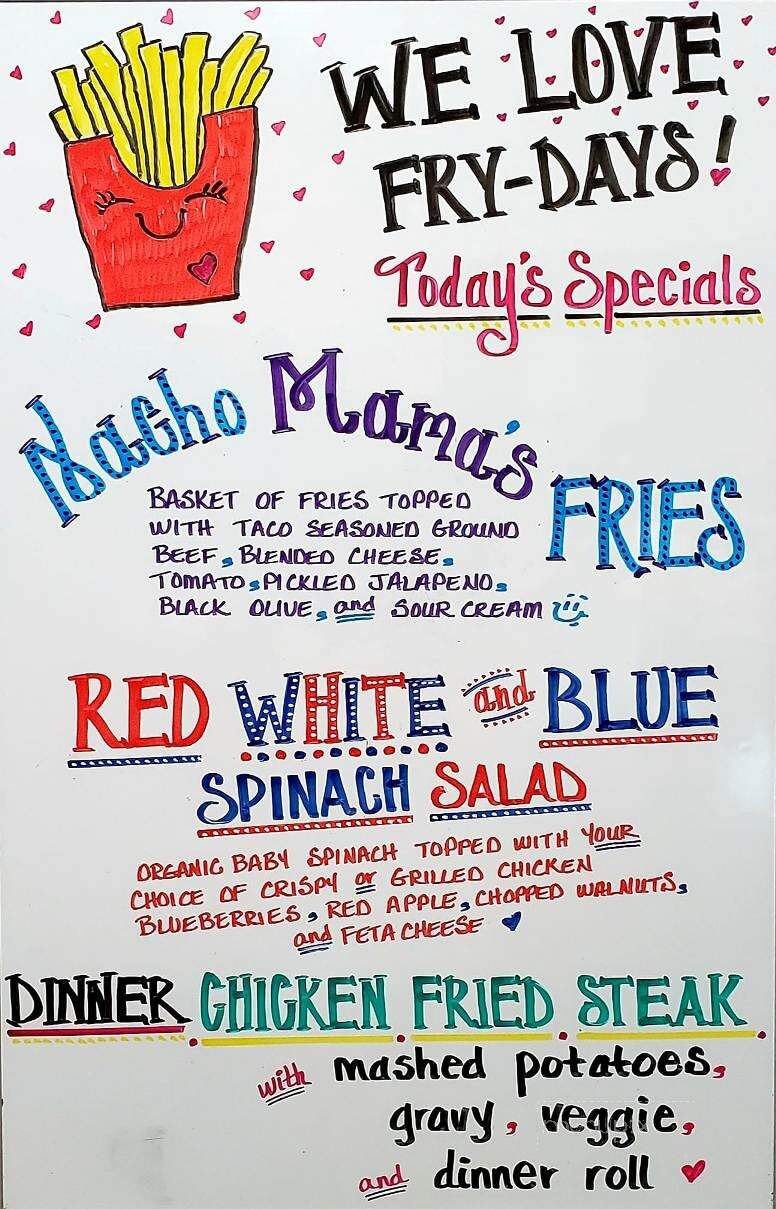 WE LOVE
FRY-DAYS!
Today's Specials
Nacho Mama's FRIES
BASKET OF FRIES TOPPED
WITH TACO SEASONED GROUND
BEEF, BLENDED CHEESE,
TOMATO, PICKLED JALAPENO,
BLACK OLIVE, and SOUR CREAM
RED WHITE and BLUE
SPINACH SALAD
ORGANIC BABY SPINACH TOPPED WITH YOUR
CHOICE OF CRISPY or GRILLED CHICKEN
BLUEBERRIES, RED APPLE, CHOPPED WALNUTS,
and FETA CHEESE
DINNER CHICKEN FRIED STEAK
with mashed potatoes,
gravy, veggie,
and dinner roll